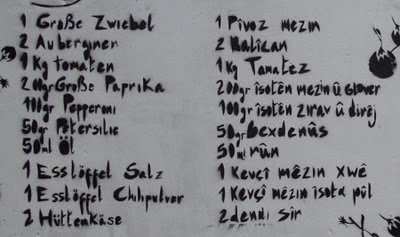 1 Große Zwiebel
2 Auberginer
1 Kg tomaten
200gr Große Paprika
100gr Pepperoni
50gr Petersilie
50ml Öl
1 Esslöffel Salz
1 Esslöffel Chilipulver
2 Hüttenkäse
1 Pîvoz mezin
2 Balîcan
1 Kg Tamatez
200gr îsotên mezin û
100gr îsotên zirav û dirêj
50gr bexdenûs
50ml rûn
1 Kevçî mêzin xwê
1 Kevçî mêzin îsota pûl
2 dendi sîr